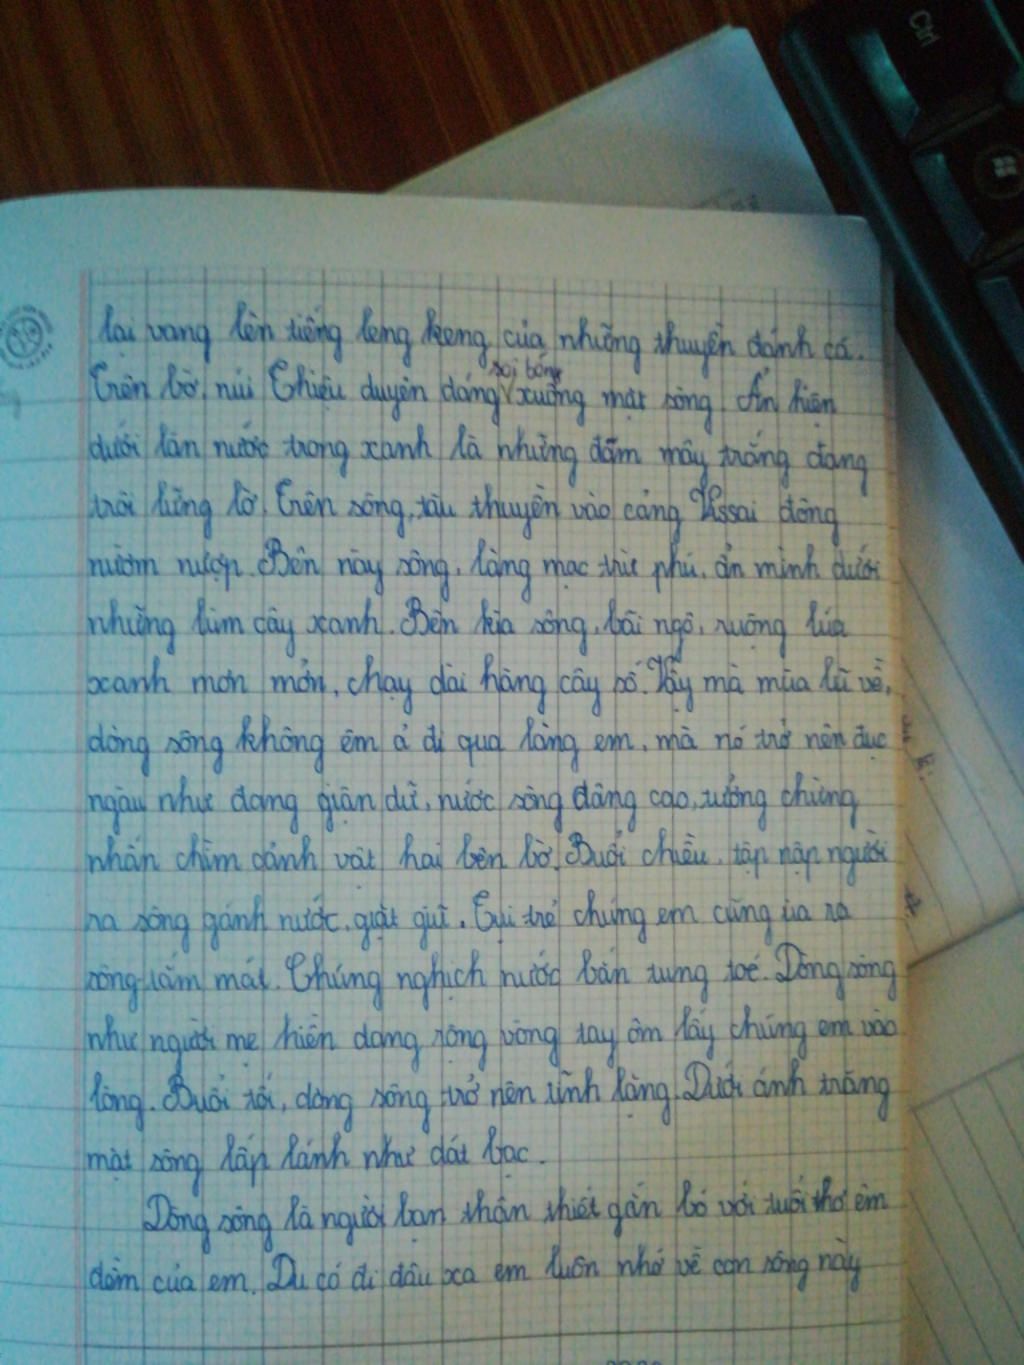 lại vang lên tiếng leng keng của những thuyền đánh cá.
Trên bờ, núi Thiệu duyên dáng soi bóng xuống mặt sông. Ẩn hiện
dưới làn nước trong xanh là những đám mây trắng đang
trôi lững lờ. Trên sông, tàu thuyền vào cảng Vissai đông
nườm nượp. Bên này sông, làng mạc trù phú, ẩn mình dưới
những lùm cây xanh. Bên kia sông, bãi ngô, ruộng lúa
xanh mơn mởn, chạy dài hàng cây số. Vậy mà mùa lũ về,
dòng sông không êm ả đi qua làng em, mà nó trở nên đục
ngàu như đang giận dữ, nước sông dâng cao, tưởng chừng
nhấn chìm cảnh vật hai bên bờ. Buổi chiều, tập nập người
ra sông gánh nước, giặt giũ. Tụi trẻ chúng em cũng ùa ra
sông tắm mát. Chúng nghịch nước bắn tung toé. Dòng sông
như người mẹ hiền dang rộng vòng tay ôm lấy chúng em vào
lòng. Buổi tối, dòng sông trở nên tĩnh lặng. Dưới ánh trăng
mặt sông lấp lánh như dát bạc.
Dòng sông là người bạn thân thiết gắn bó với tuổi thơ êm
đềm của em. Dù có đi đâu xa em luôn nhớ về con sông này
Ctrl